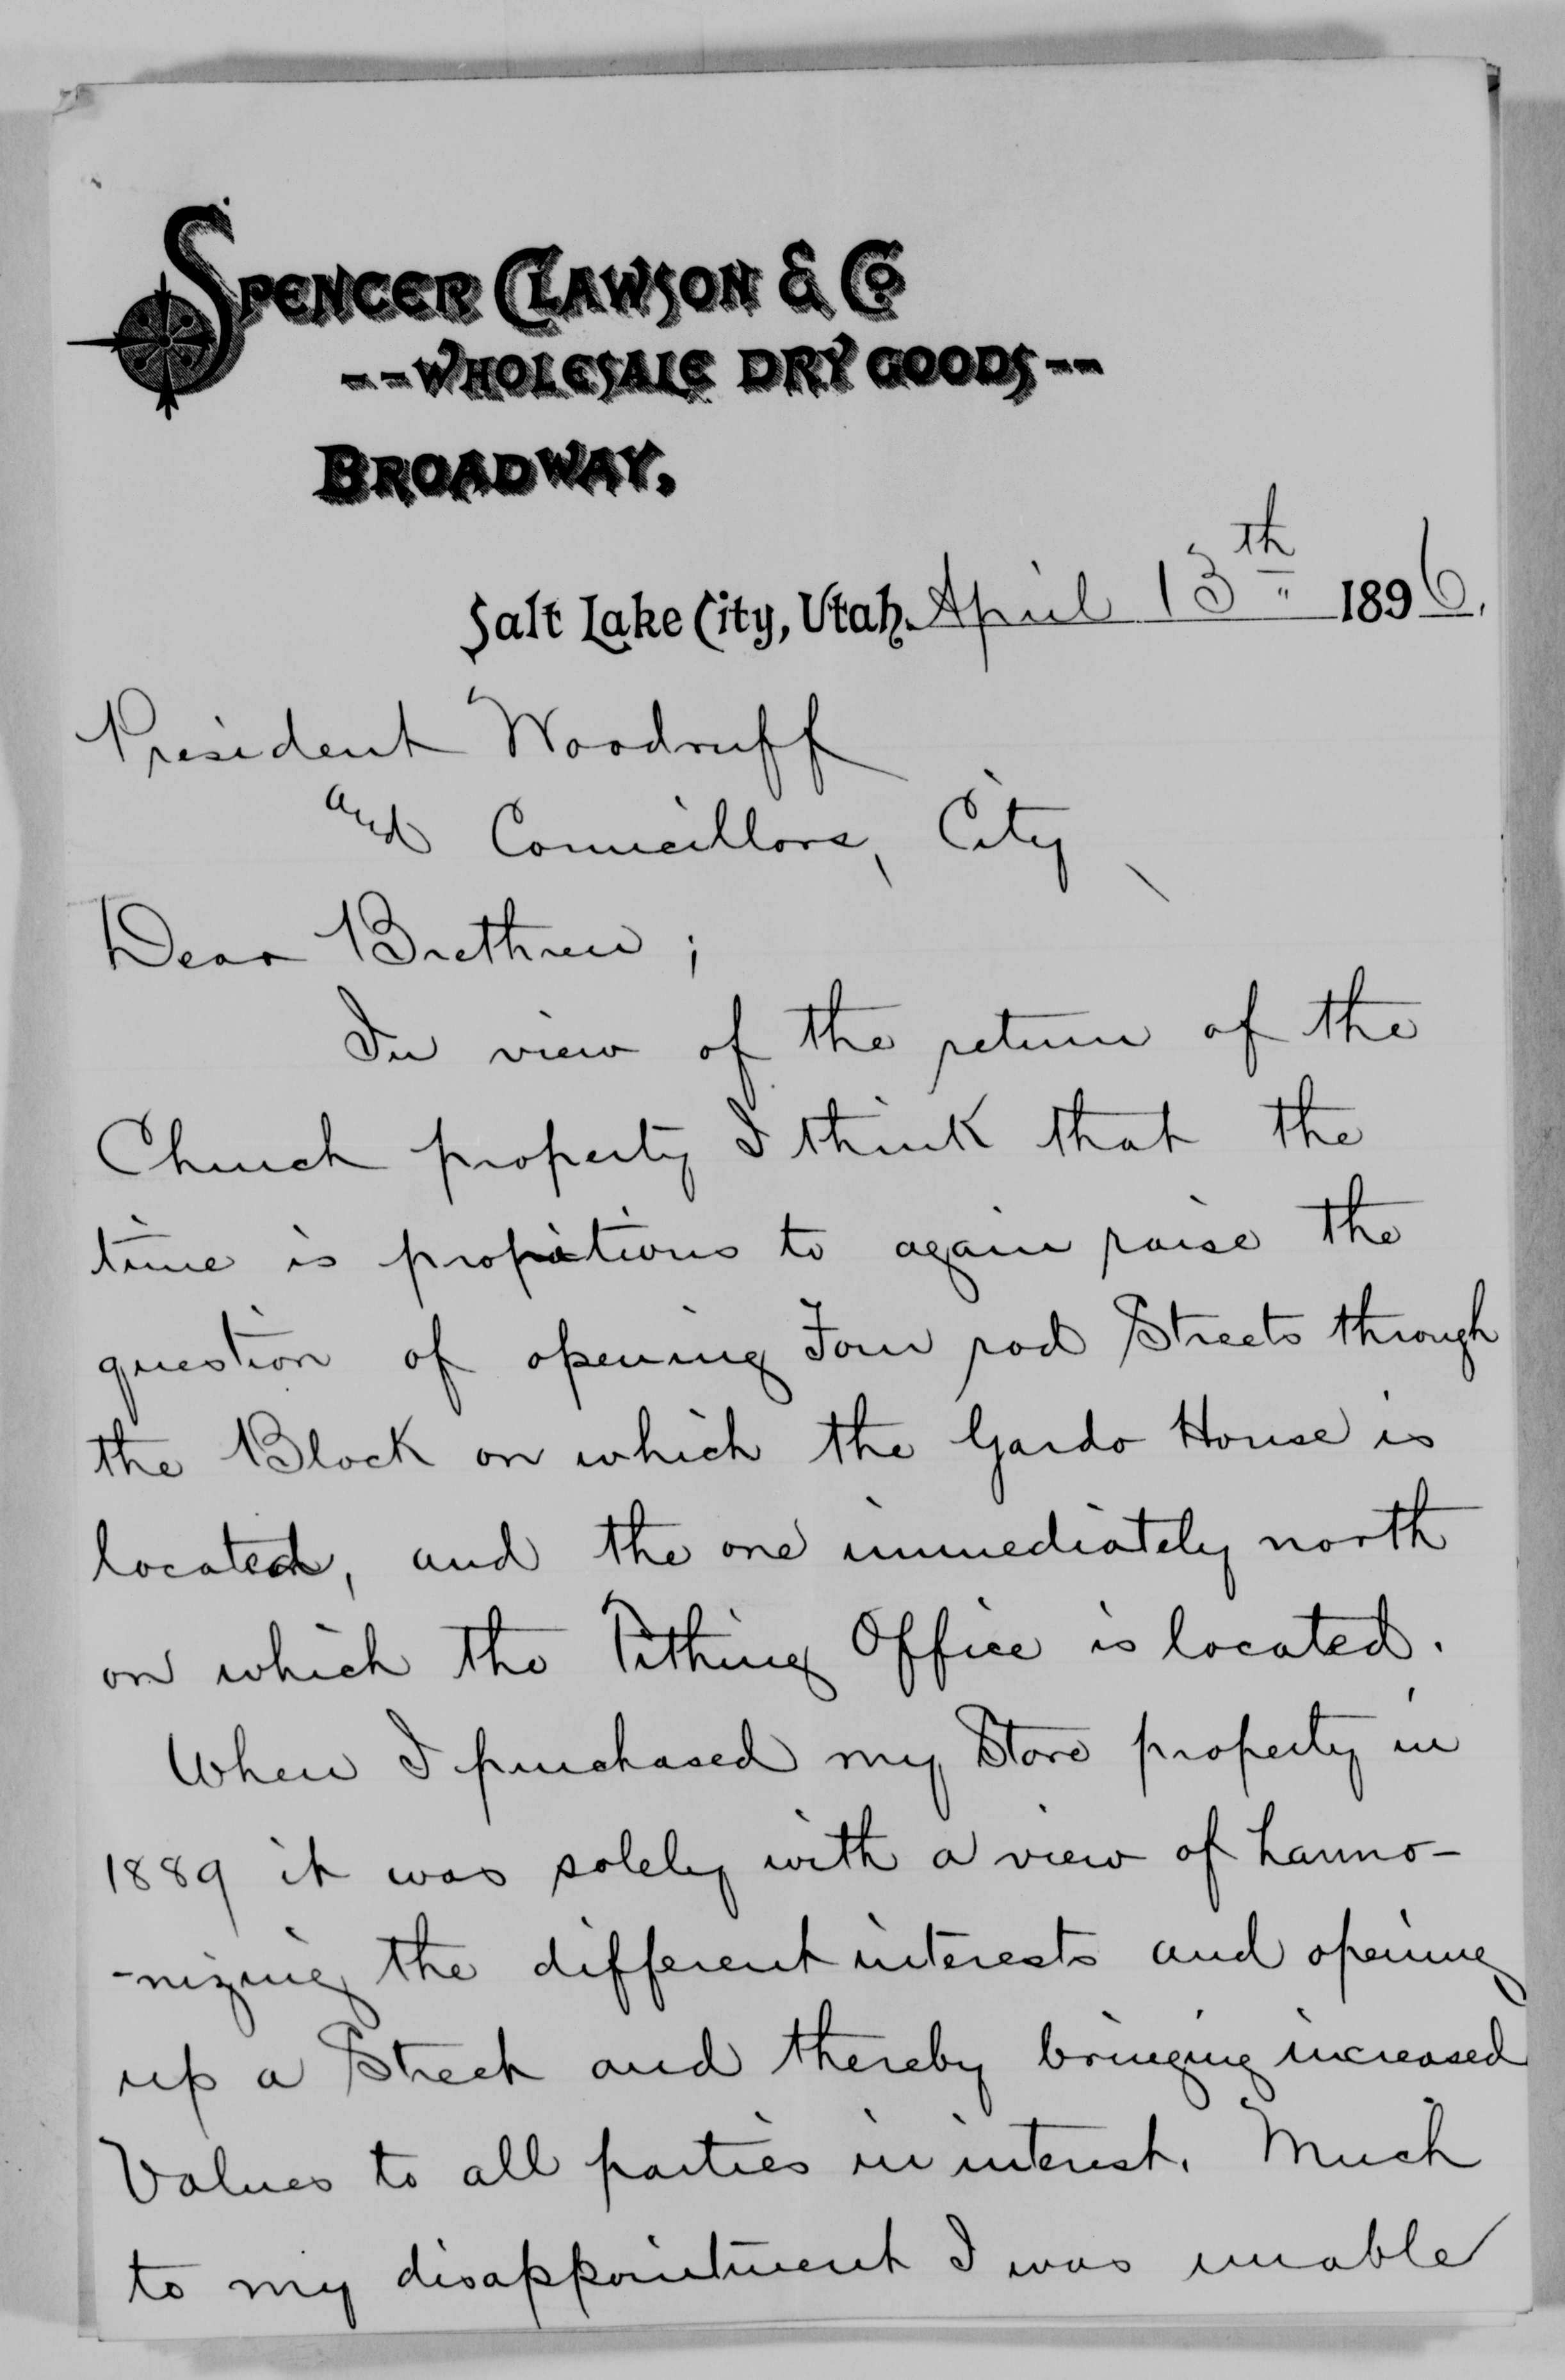 SPENCER CLAWSON & CO
--WHOLESALE DRY GOODS--
BROADWAY.
Salt Lake City, Utah. April 13th 1896.
President Woodruff
and Councillors, City
Dear Brethren;
In view of the return of the
Church property I think that the
time is propitious to again raise the
question of opening Four rod Streets through
the Block on which the Gardo House is
located, and the one immediately north
on which the Tithing Office is located.
When I purchased my Store property in
1889 it was solely with a view of harmo-
-nizing the different interests and opening
up a Street and thereby bringing increased
Values to all parties in interest. Much
to my disappointment I was unable